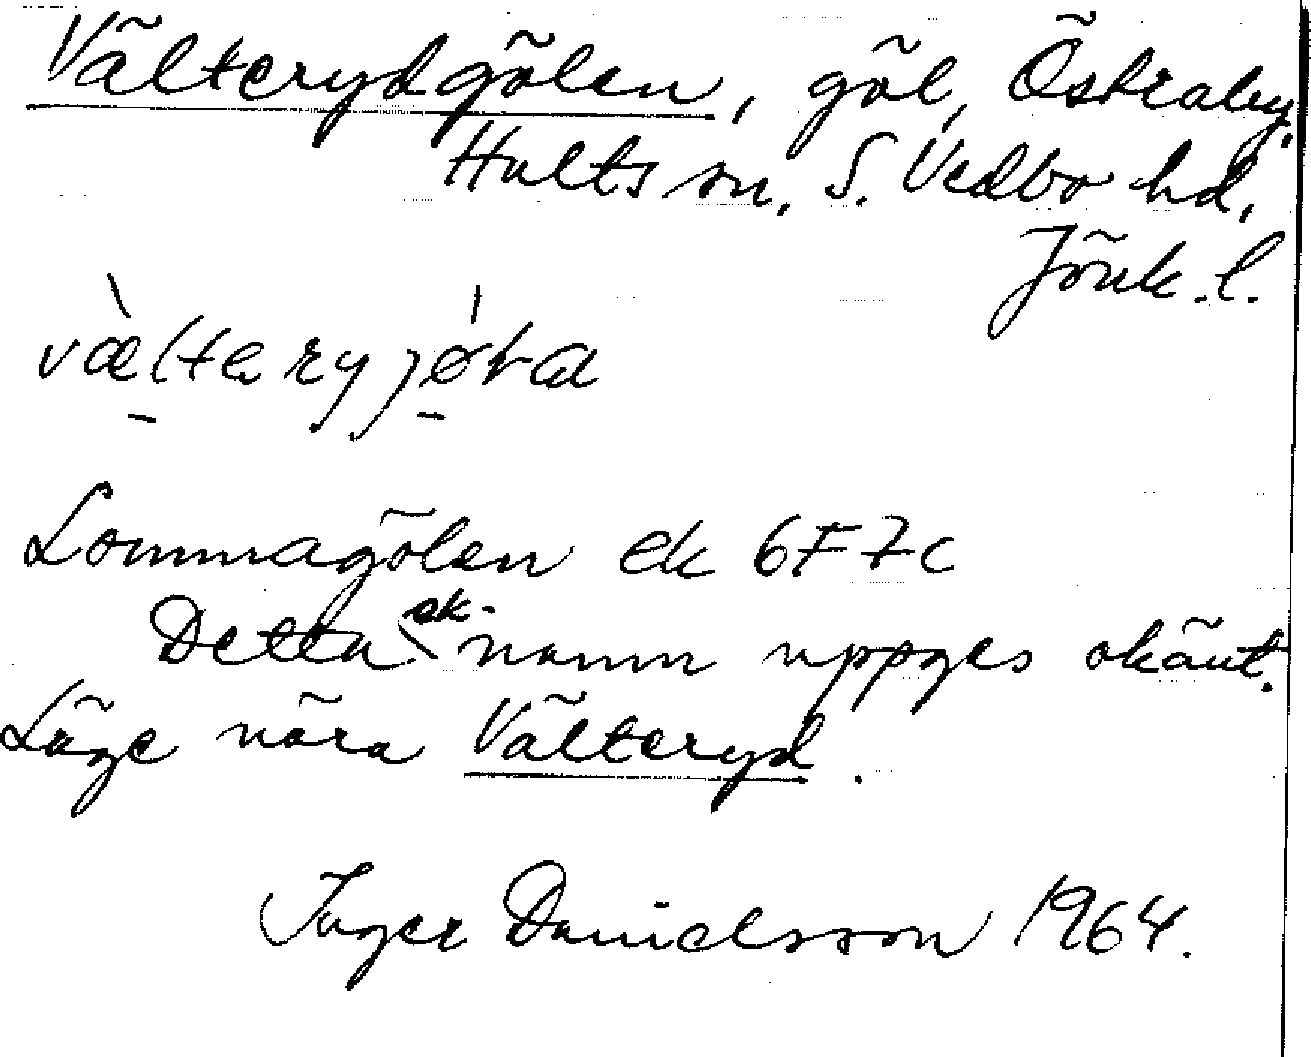 Välterydgölen, göl, Östraby.
Hults sn, S. Vedbo hd,
Jönk. l.
Lommagölen ek 6F7c
Detta ek-namn uppges okänt.
Läge nära Välteryd.
Inger Danielsson 1964.